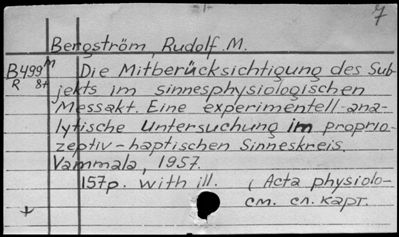 7
Bergström, Rudolf M.
B499 M Die Mitberücksichtigung des Sub-
R 8+ jekts im sinnesphysiologischen
Messakt. Eine experimentell-ana-
lytische Untersuchung im proprio-
zeptiv-haptischen Sinneskreis.
Vammala, 1957.
157p. with ill. (Acta physiolo-
см. сл. карт.